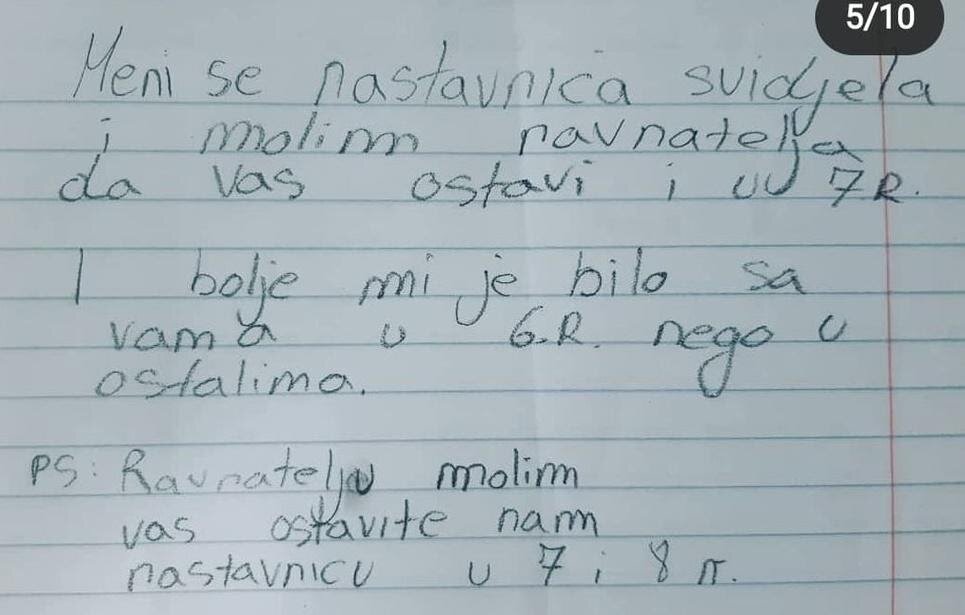 5/10
Meni se nastavnica svidjela
i molim ravnatelja
da vas ostavi i u 7 R.
I bolje mi je bilo sa
vama u 6.R. nego u
ostalima.
PS: Ravnatelju molim
vas ostavite nam
nastavnicu u 7 i 8 r.